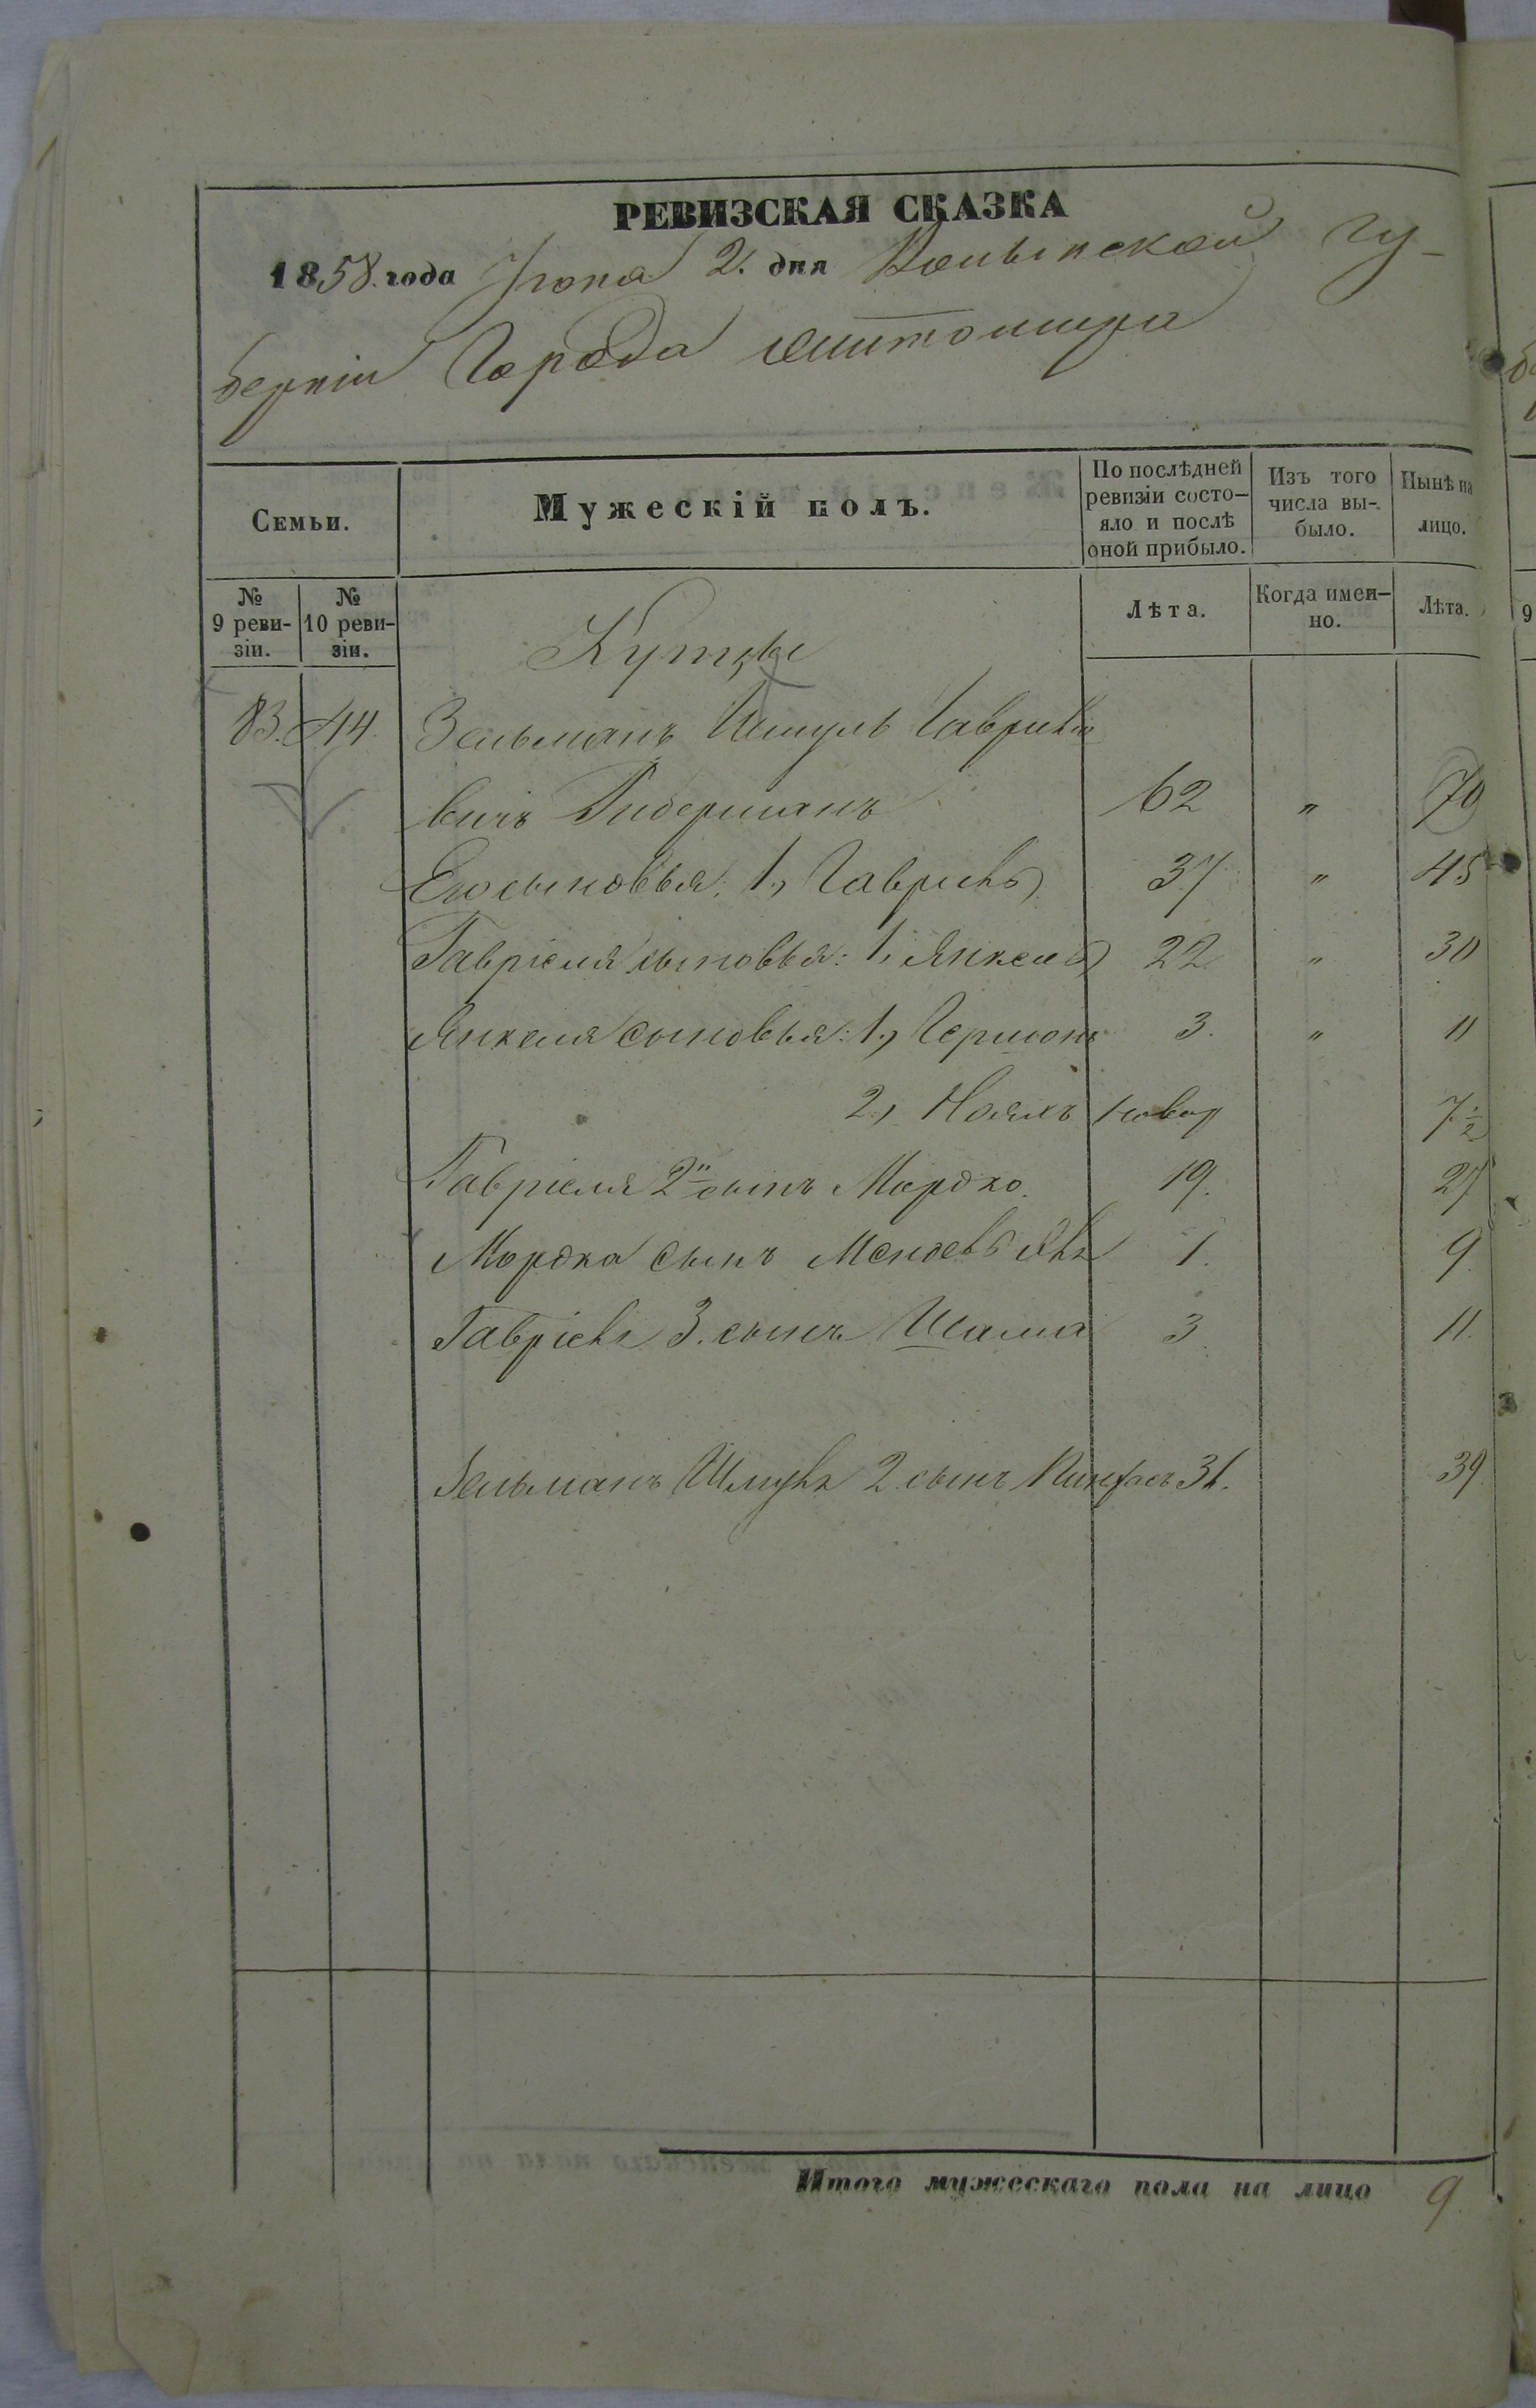 РЕВИЗСКАЯ СКАЗКА
1858. года Іюня 2. дня Волынской Гу-
берніи Города Житомира
Семьи.
Мужескій полъ.
По послѣдней ревизіи состо-яло и послѣ оной прибыло.
Изъ того числа вы-было.
Нынѣ на лицо.
№ 9 реви-зіи.
№ 10 реви-зіи.
Лѣта.
Когда имен-но.
Лѣта.
Купцы
83. 44. Зельманъ Шмуль Гавріеле
вичъ Гиберманъ 62 " 70
Его сыновья: 1, Гавріель 37 " 45
Гавріеля сыновья: 1, Янкель 22 " 30
Янкеля сыновья: 1, Гершонъ 3. " 11
2, Ноахъ новор 7 1/2
Гавріеля 2й сынъ Мордко. 19. 27
Мордка сынъ Мендель 1. 9
Гавріель 3. сынъ Шама 3 11.
Зельманъ Шмуль 2 сынъ Пинхасъ 31. 39
Итого мужескаго пола на лицо 9.